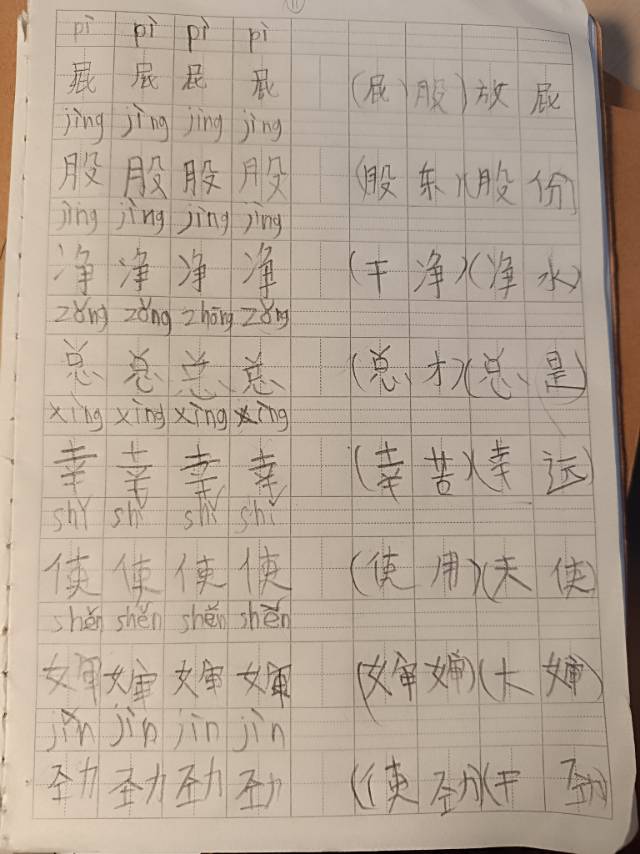 11
pì pì pì pì
屁 屁 屁 屁 (屁 股) 放 屁
jìng jìng jìng jìng
股 股 股 股 (股 东)(股 份)
jìng jìng jìng jìng
净 净 净 净 (干 净)(净 水)
zǒng zǒng zhōng zǒng
总 总 总 总 (总 才)(总 是)
xìng xìng xìng xìng
幸 幸 幸 幸 (幸 苦)(幸 运)
shǐ shǐ shǐ shǐ
使 使 使 使 (使 用)(天 使)
shěn shěn shěn shěn
婶 婶 婶 婶 (婶 婶)(大 婶)
jìn jìn jìn jìn
劲 劲 劲 劲 (使 劲)(干 劲)